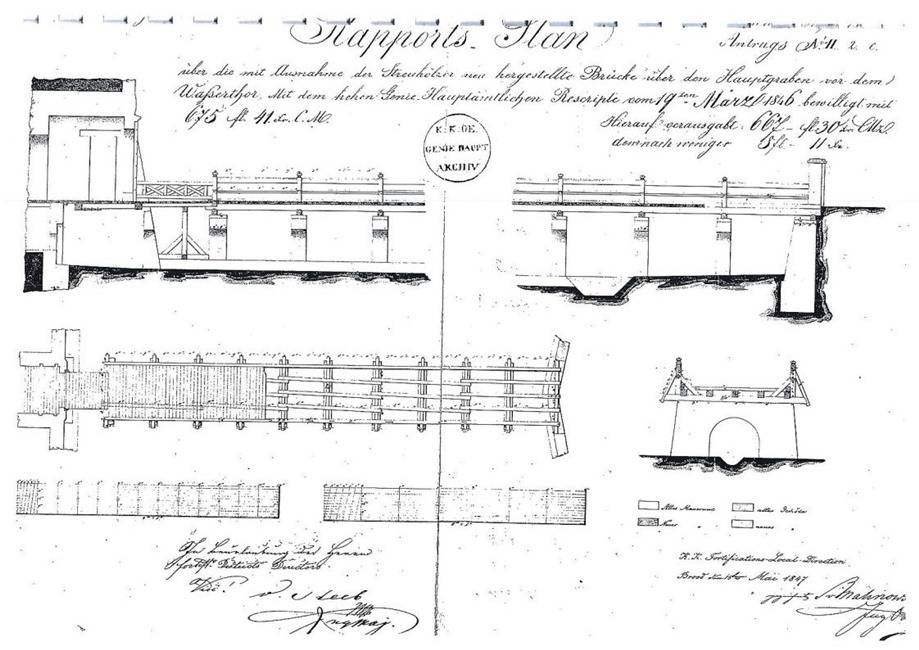 Rapports-Plan
Antrugs No 11
über die mit Ausnahme der Streuhölzer neu hergestellte Brücke über den Hauptgraben vor dem
Waßerthor, Mit dem hohen Genie-Hauptämtlichen Rescripte vom 19ten März 1846 bewilligt mit
675 fl. 41 kr. C.M.
Hierauf verausgabt 667 - fl 30
demnach weniger 8 fl - 11 kr.
K.K.GE.
GENIE HAUPT
ARCHIV
Altes Mauerwerk
altes
Neues "
neues "
In der Herrn
Districts Directors
K.K. Fortifications-Local-Direction
Brood Mai 1847